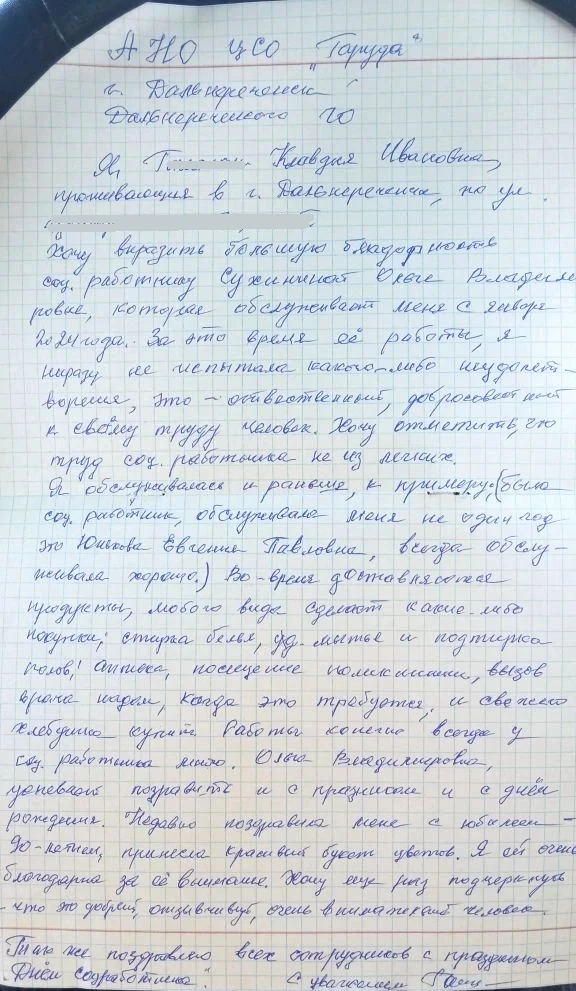 АНО ЦСО "Гаруда"
г. Дальнереченск
Дальнереченского ГО
Я, Клавдия Ивановна,
проживающая в г. Дальнереченске, по ул.
Хочу выразить большую благодарность
соц. работнику Сухининой Ольге Владими
ровне, которая обслуживает меня с января
2024 года. За это время её работы, я
ниразу не испытала какого-либо неудовлет-
ворения, это – ответственный, добросовестный
к своему труду человек. Хочу отметить, что
труд соц. работника не из легких.
Я обслуживалась и раньше, к примеру: (была
соц. работник, обслуживала меня не один год
это Юнькова Евгения Павловна, всегда обслу-
живала хорошо.) Во-время доставляются
продукты, любого вида сделает какие-либо
покупки; стирка белья, уд. мытьё и подтирка
полов; аптека, посещение поликлиники, вызов
врача надом, когда это требуется, и свежего
хлебушка купит. Работы конечно всегда у
соц. работника много. Ольга Владимировна,
успевает поздравить и с праздником и с днём
рождения. Недавно поздравила меня с юбилеем -
90-летием, принесла красивый букет цветов. Я ей очень
благодарна за её внимание. Хочу еще раз подчеркнуть
- что это добрый, отзывчивый, очень внимательный человек.
Так же поздравляю всех сотрудников с праздником
"Днём соцработника". С уважением